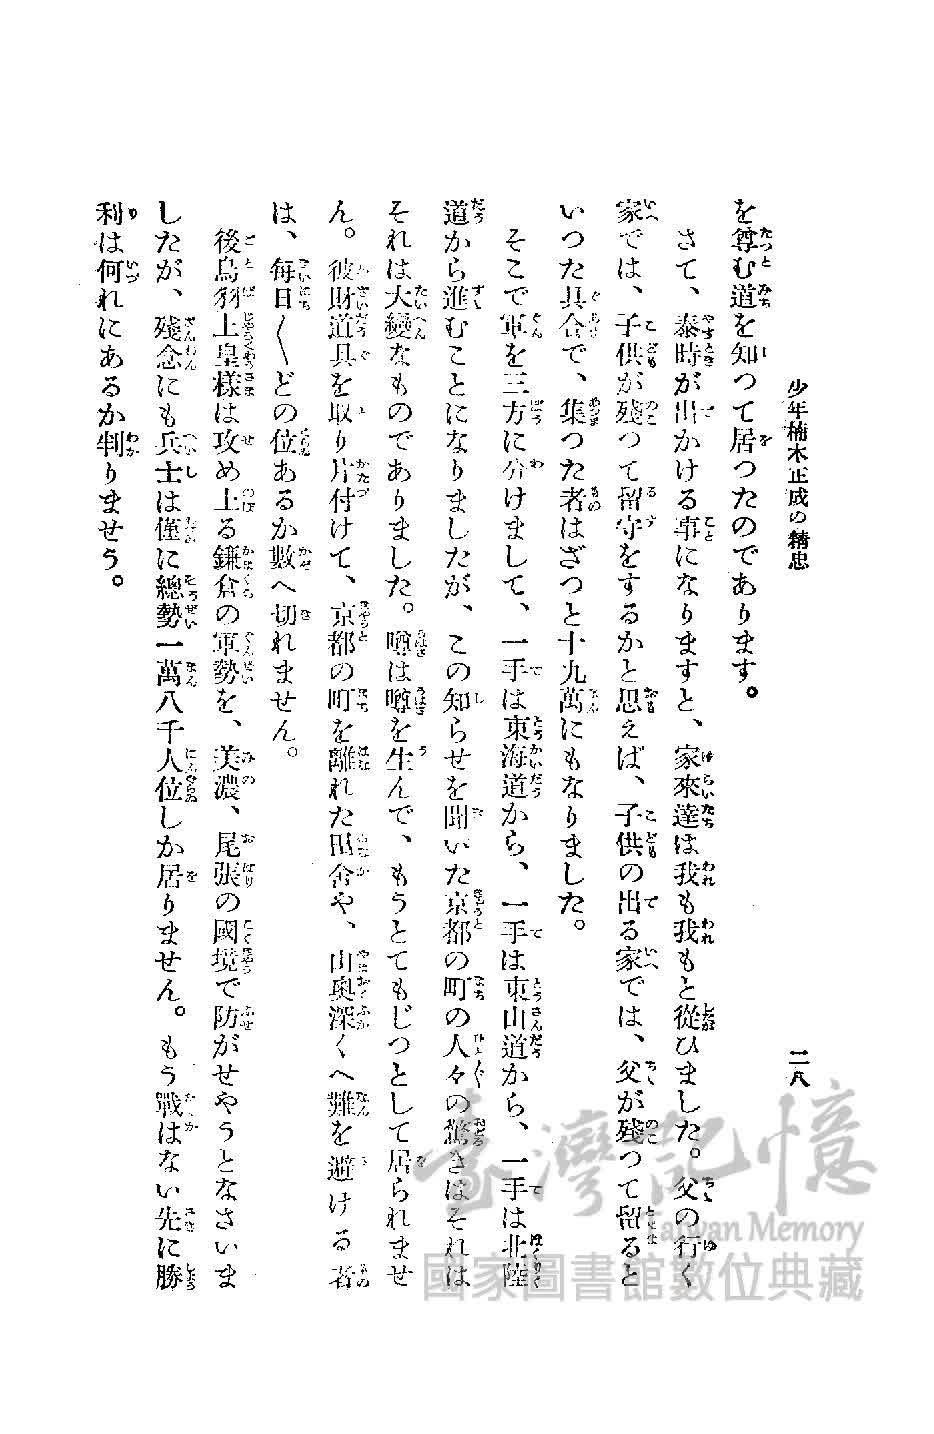 少年楠木正成の精忠
二八
を尊む道を知つて居つたのであります。
さて、泰時が出かける事になりますと、家來達は我も我もと從ひました。父の行く
家では、子供が殘つて留守をするかと思えば、子供の出る家では、父が殘つて留ると
いつた具合で、集つた者はざつと十九萬にもなりました。
そこで軍を三方に分けまして、一手は東海道から、一手は東山道から、一手は北陸
道から進むことになりましたが、この知らせを聞いた京都の町の人々の驚きはそれは
それは大變なものでありました。噂は噂を生んで、もうとてもじつとして居られませ
ん。彼財道具を取り片付けて、京都の町を離れた田舍や、山奥深くへ難を避ける者
は、毎日〱どの位あるか數へ切れません。
後鳥羽上皇樣は攻め上る鎌倉の軍勢を、美濃、尾張の國境で防がせやうとなさいま
したが、殘念にも兵士は僅に總勢一萬八千人位しか居りません。もう戰はない先に勝
利は何れにあるか判りませう。
臺灣記憶
Taiwan Memory
國家圖書館數位典藏